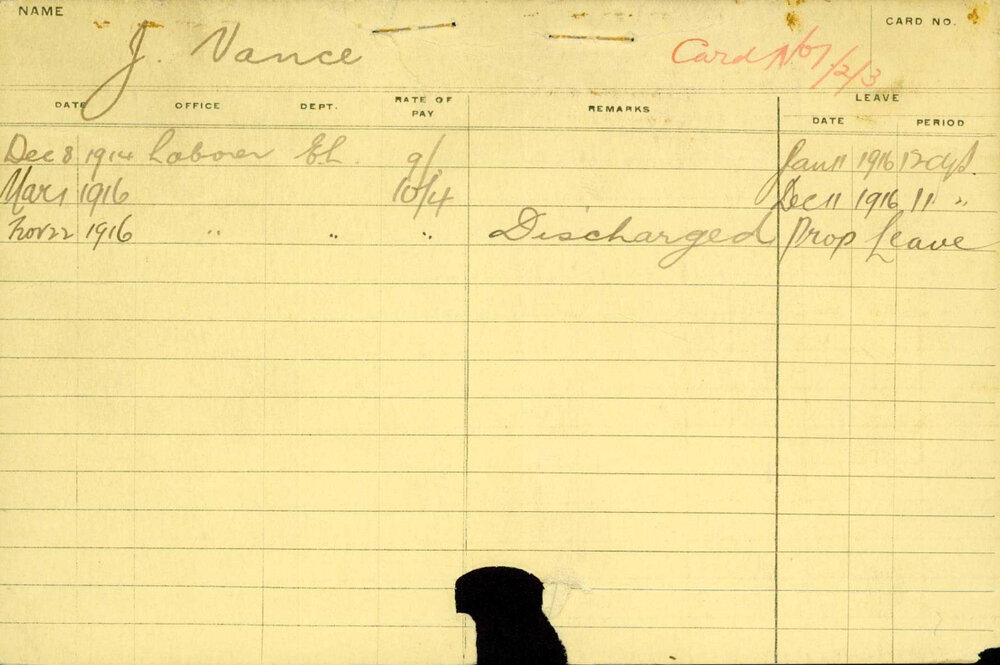 NAME
CARD NO.
J. Vance
Card No 1/2/3
DATE OFFICE DEPT. RATE OF PAY REMARKS LEAVE
DATE PERIOD
Dec 8 1914 Laborer El. 9/ Jan 11 1916 12 dys
Mar 1 1916 10/4 Dec 11 1916 11 "
Nov 22 1916 " " " Discharged Prop Leave